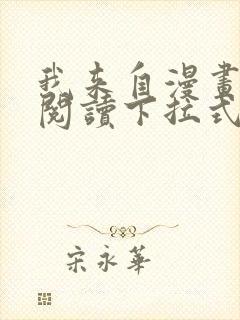 我来自漫畫
閱讀下拉式
宋永華